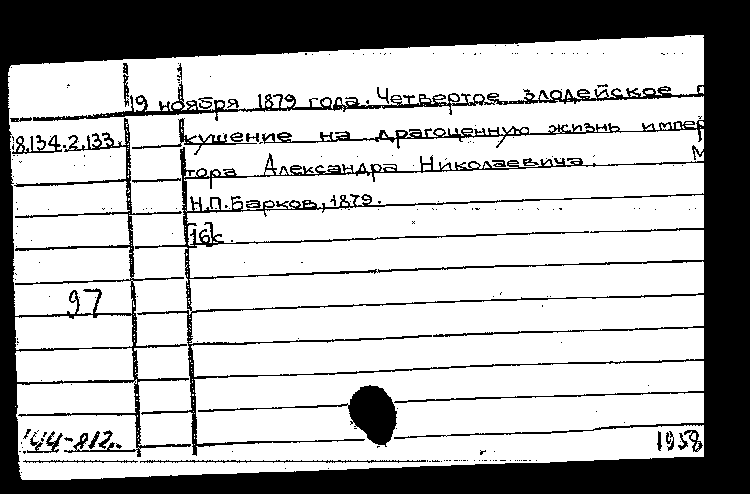 19 ноября 1879 года. Четвертое злодейское п
18.134.2.133.
кушение на драгоценную жизнь импер
тора Александра Николаевича. М
Н.П.Барков, 1879.
[16]с.
97
144-812.
1958